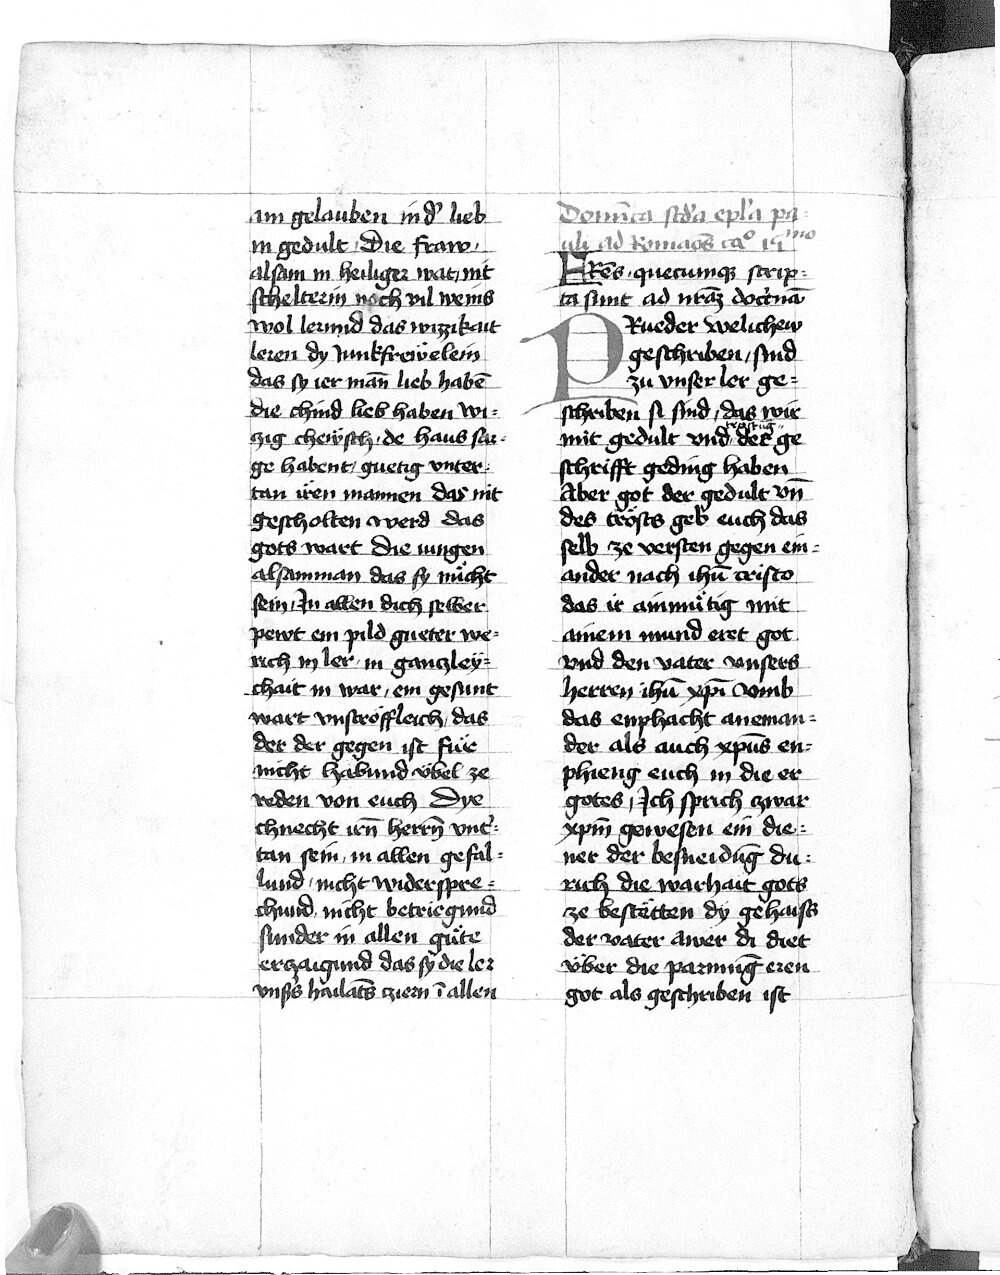 am gelauben in d' lieb
in gedult / Die fraw /
alsam in heiliger wat / nit
schelterin noch vil weins
wol lerund das wizzikait
leren dy Junkfrewelein
das sy ier mān lieb habē
die chind lieb haben wi=
zig chewsch / de haus sar=
ge habent / guetig vnter=
tan iren mannen das nit
gescholten werd das
gots wart Die iungen
alsamman das sy nücht
sein / In allen dich selber
pewt ein pild gueter we=
rich in ler / in ganczley=
chait in war / ein gesunt
wart vnströffleich / das
der der gegen ist für
nicht habund vbel ze
reden von euch Dye
chnecht irn̄ herrn̄ vnt'=
tan sein / in allen gefal=
lund / nicht widerspre=
chund / nicht betriegund
sunder in allen güte
erczaigund das sy die ler
vns's hailāts cziern ī allen
Domīca scd'a epl'a pa=
uli ad Romāos caᵒ 15ᵐᵒ
FRēs / quecumqꝫ scrip=
ta sunt ad nrāꝫ doctnā
PRueder welichew
geschriben / sind
zu vnser ler ge=
schriben si sind / das wir
mit gedult vnd tröstūg der ge
schrifft geding haben
Aber got der gedult vn̄
des trösts geb euch das
selb ze versten gegen ein=
ander nach ihū cristo
das ir ainmütig mit
ainem mund eret got
vnd den vater vnsers
herren ihū xpī vmb
das enphacht aneman=
der als auch xpūs en=
phieng euch in die er
gotes / Ich sprich czwar
xpm̄ gewesen ein die=
ner der besneidūg du=
rich die warhait gots
ze bestëtten dy gehaiss
der vater awer di diet
vber die parmūg eren
got als geschriben ist